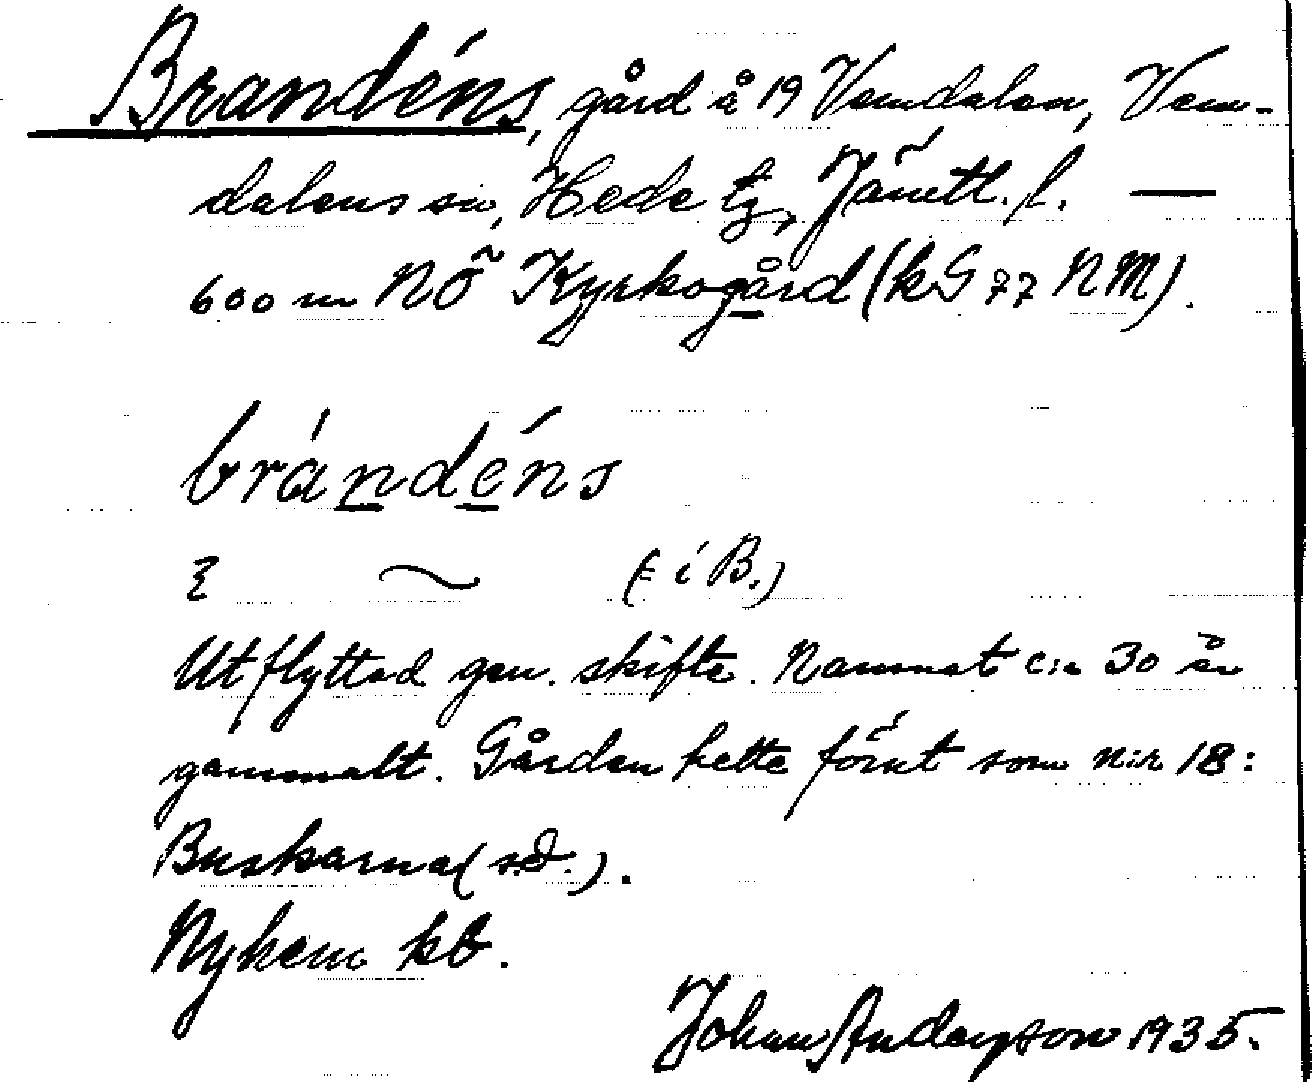 Brandéns, gård å 19 Vemdalen, Vem-
dalens sn, Hede tg, Jämtl. l. —
600 m NÖ Kyrkogård (kG 77 NM).
brándéns
ξ ~ (ξ i B.)
Utflyttad gen. skifte. Namnet c:a 30 år
gammalt. Gården hette förut som n:r 18:
Buskarna (s.d.).
Nyhem kb.
Johan Anderson 1935.